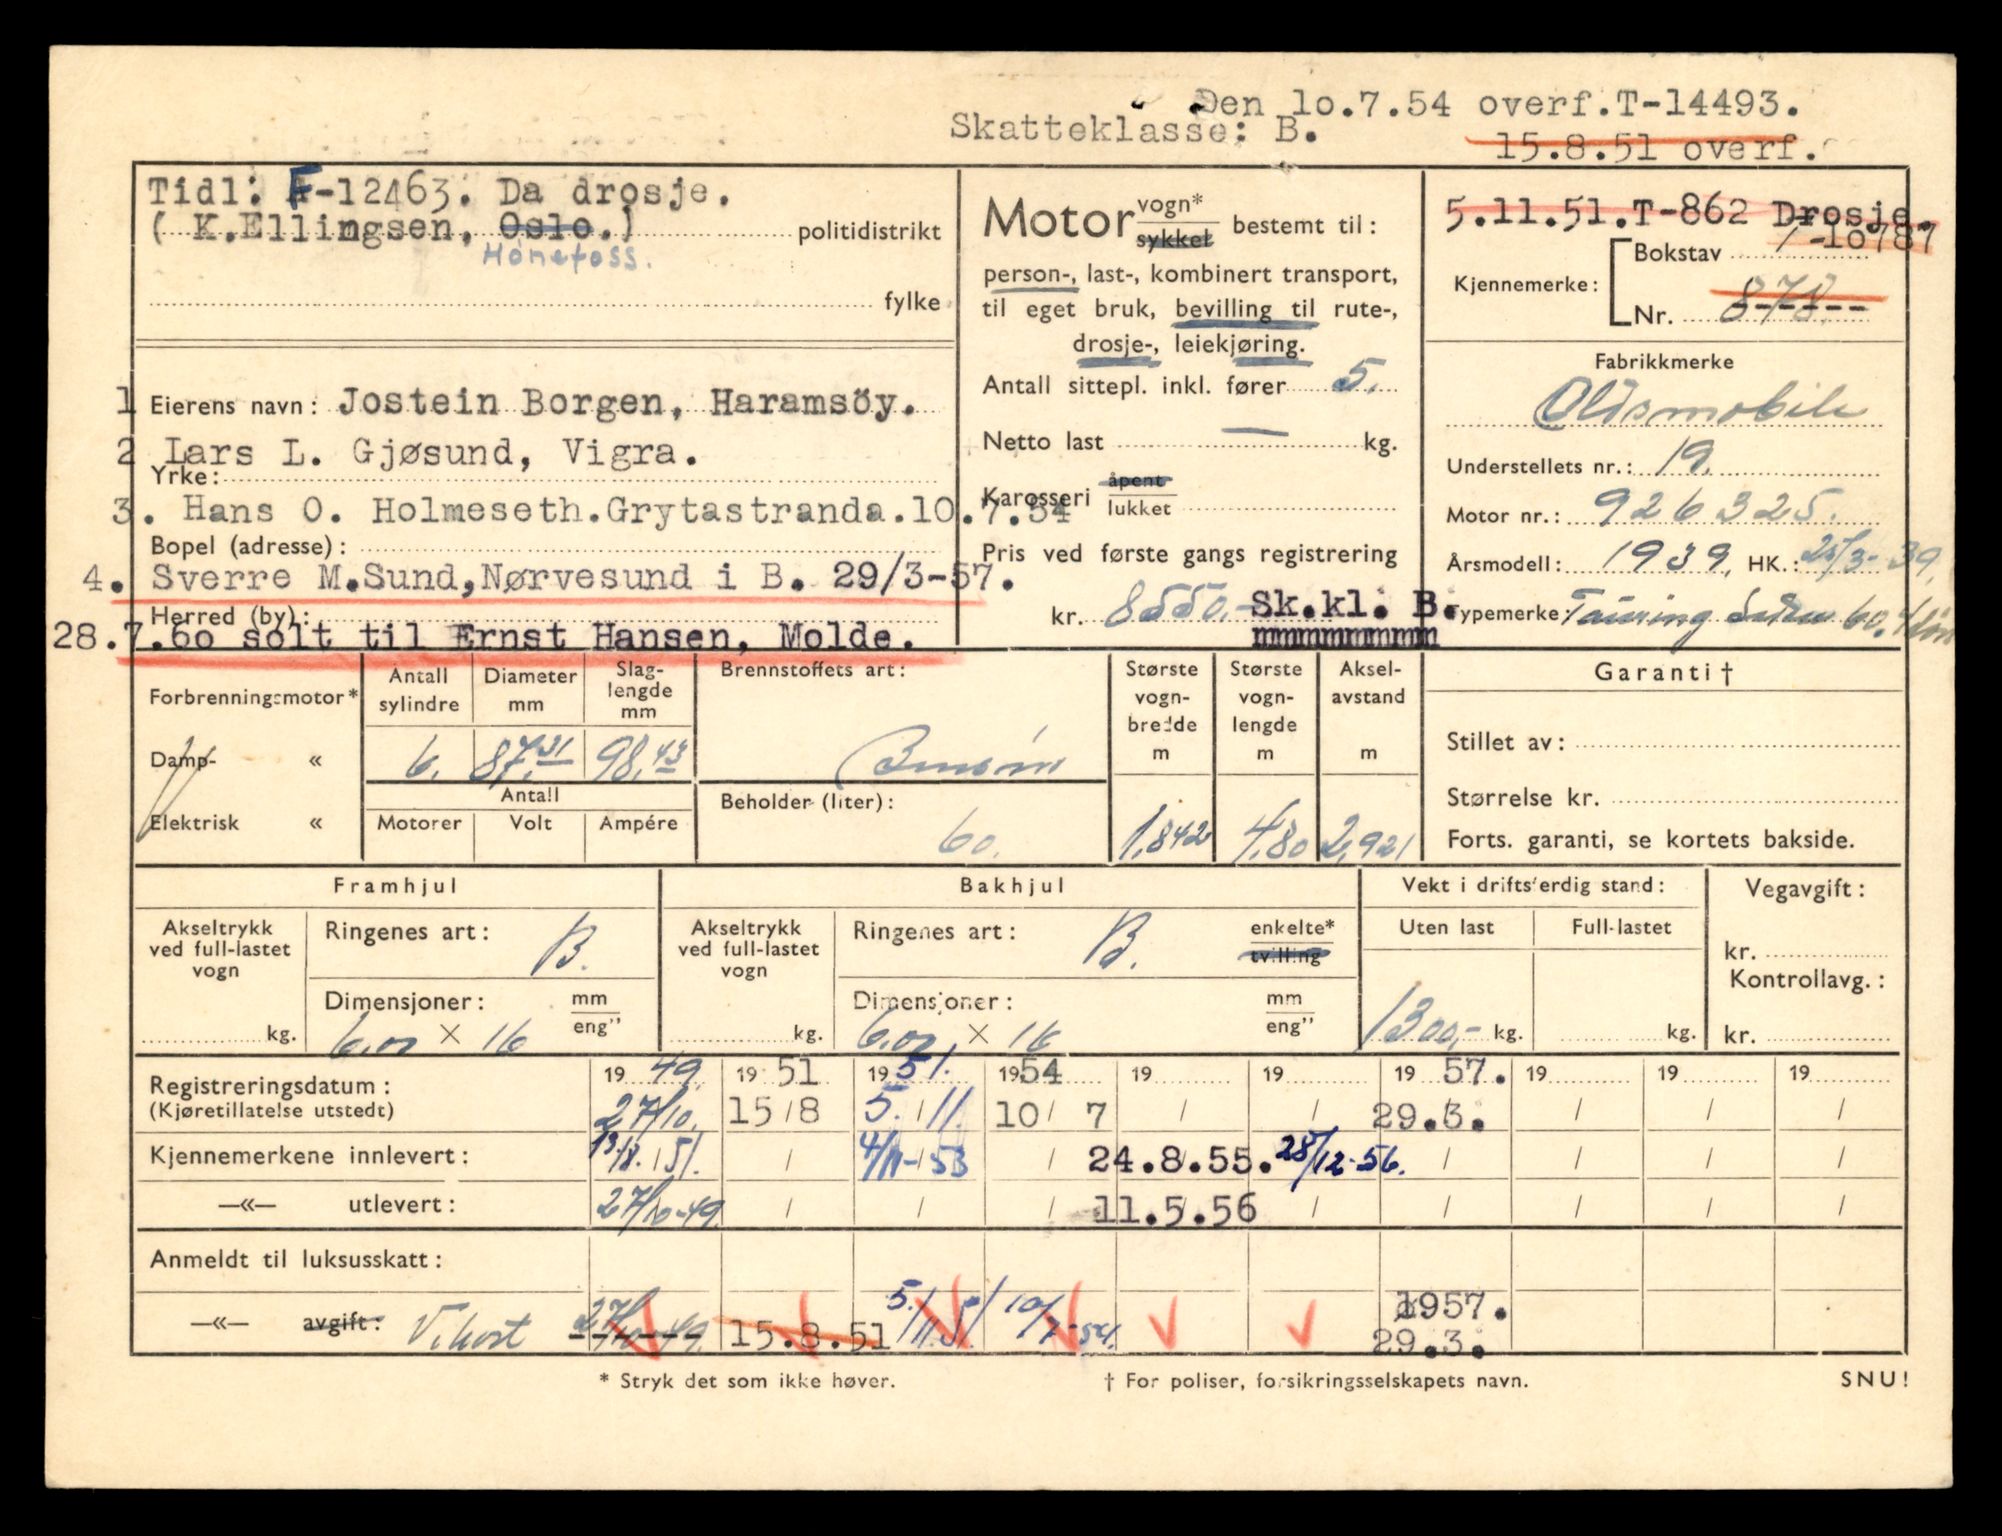 Den 10.7.54 overf.T-14493.
Skatteklasse: B.
15.8.51 overf.
Tidl: F-12463. Da drosje.
( K.Ellingsen, Oslo.) politidistrikt
Hönefoss.
fylke
Motor vogn* sykkel bestemt til:
person-, last-, kombinert transport,
til eget bruk, bevilling til rute-,
drosje-, leiekjøring.
Antall sittepl. inkl. fører 5.
Netto last — kg.
Karosseri åpent lukket
Pris ved første gangs registrering
kr. 8550,- Sk.kl. B.
5.11.51.T-862 Drosje.
-10787
Kjennemerke: Bokstav
Nr. 878.
Fabrikkmerke
Oldsmobile
Understellets nr.: 19.
Motor nr.: 926325.
Årsmodell: 1939, HK.: 25/3-39,
Typemerke: Touring Sedan 60.
1 Eierens navn: Jostein Borgen, Haramsöy.
2 Lars L. Gjøsund, Vigra.
Yrke:
3. Hans O. Holmeseth.Grytastranda.10.7.54
Bopel (adresse):
4. Sverre M.Sund,Nørvesund i B. 29/3-57.
Herred (by):
28.7.60 solt til Ernst Hansen, Molde.
Forbrenningsmotor*
Damp- «
Elektrisk «
Antall sylindre
Diameter mm
Slaglengde mm
6. 87.31 98.43
Antall
Motorer Volt Ampére
Brennstoffets art:
Bensin
Beholder (liter):
60.
Største vognbredde m
Største vognlengde m
Akselavstand m
1,842 4,80 2,921
Garanti †
Stillet av:
Størrelse kr.
Forts. garanti, se kortets bakside.
Framhjul
Bakhjul
Vekt i driftsferdig stand:
Vegavgift:
Akseltrykk ved full-lastet vogn
kg.
Ringenes art: B.
Dimensjoner: mm eng"
6.00 × 16
Akseltrykk ved full-lastet vogn
kg.
Ringenes art: B. enkelte* tvilling
Dimensjoner: mm eng"
6.00 × 16
Uten last Full-lastet
1300,- kg. kg.
kr.
Kontrollavg.:
kr.
Registreringsdatum: 19 49. 19 51 19 51. 19 54 19 19 19 57. 19 19 19
(Kjøretillatelse utstedt) 27/10. 15/8 5. / 11. 10 / 7 / / 29.3. / / /
Kjennemerkene innlevert: 13./8. 51. / 4/11-53 / 24.8.55. 28/12-56. / / / /
—«— utlevert: 27/10-49. / / / 11.5.56 / / / / /
Anmeldt til luksusskatt:
—«— avgift: V.kort 27/10-49. 15.8.51 5./11.51 10/7-54. 1957.
29.3.
* Stryk det som ikke høver.
† For poliser, forsikringsselskapets navn.
SNU!